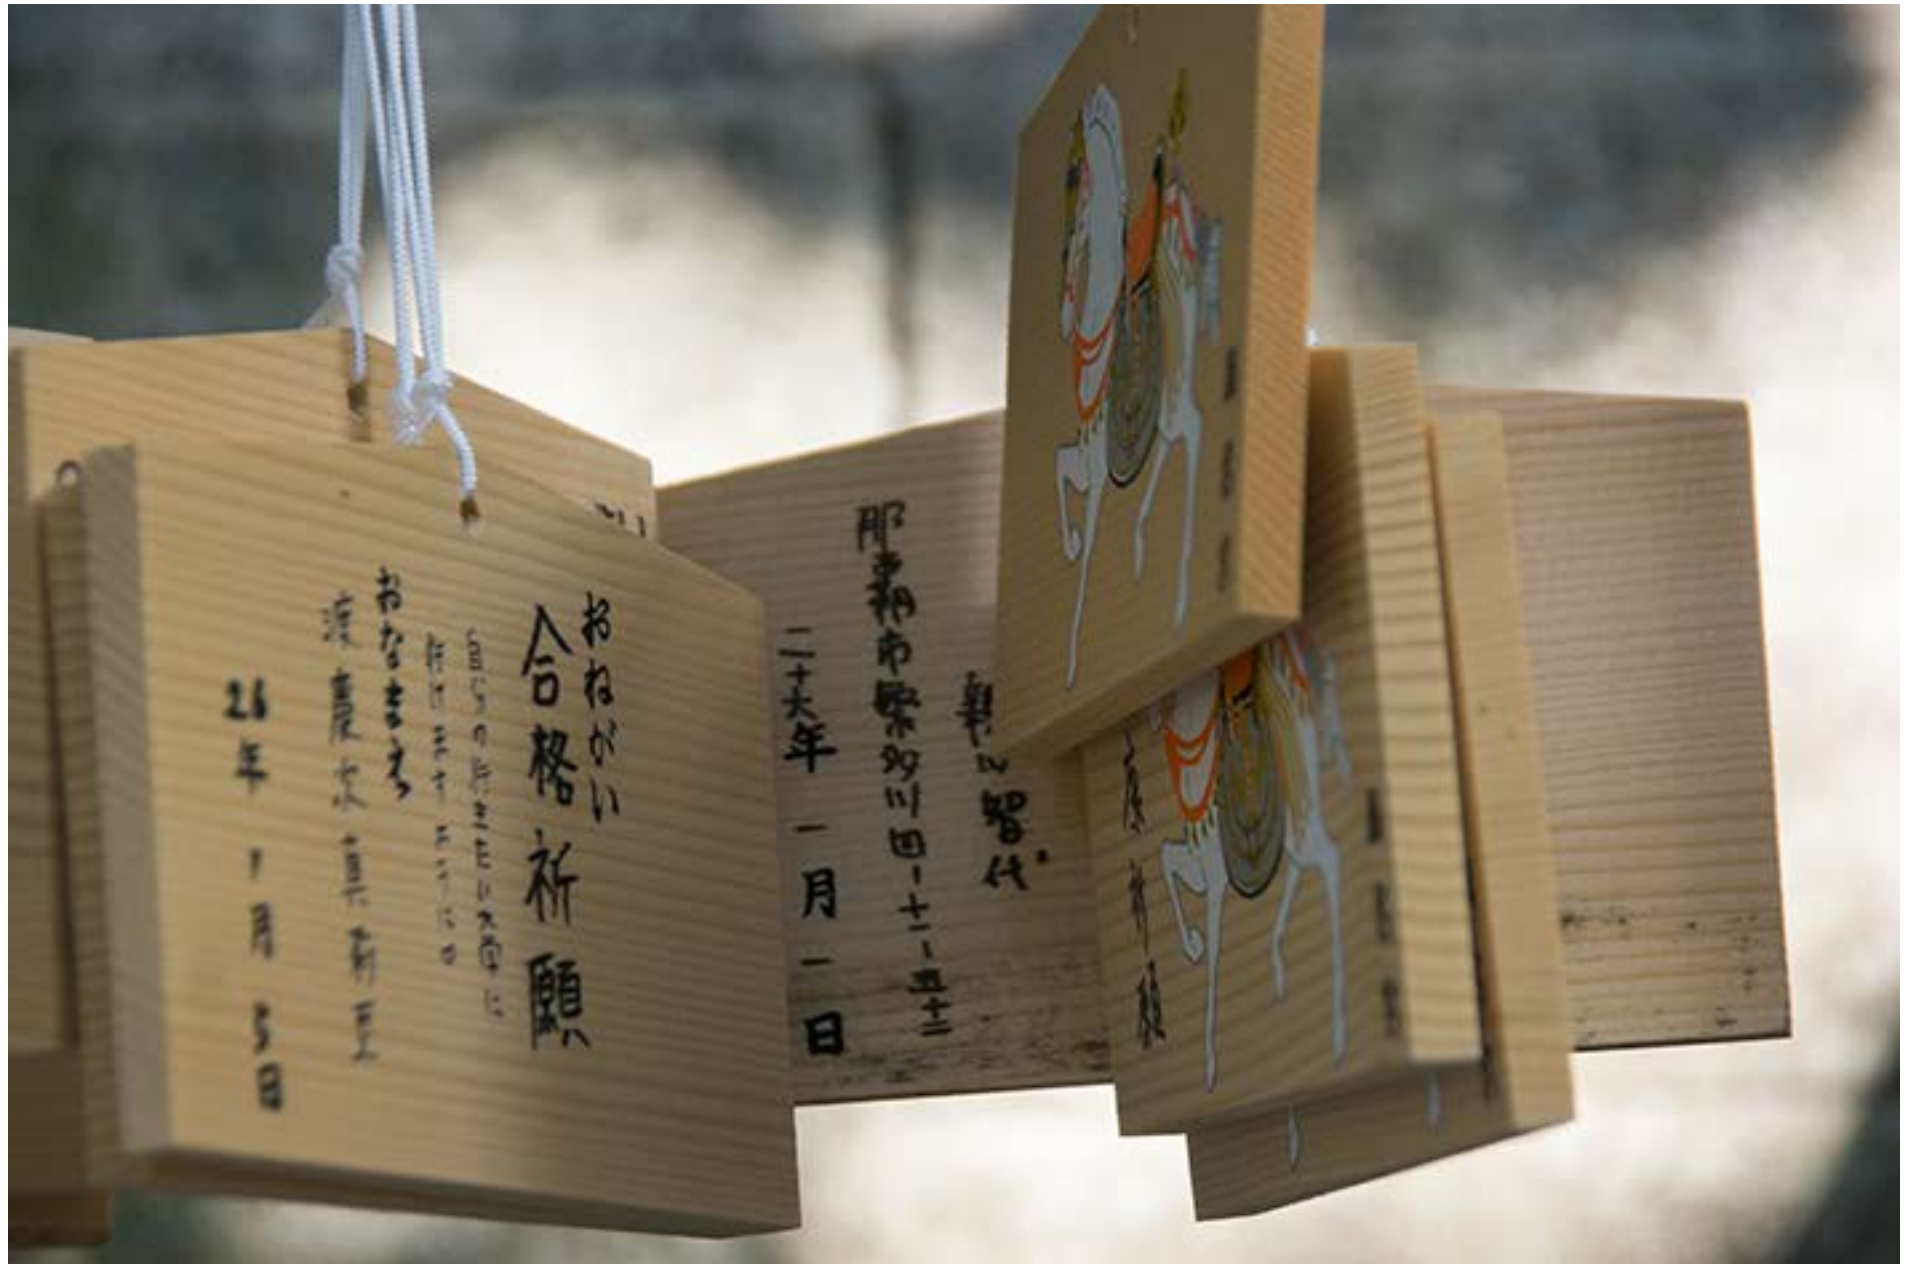 おねがい
合格祈願
自分の行きたい大学に
行けますように。
おなまえ
渡慶次真
26年1月5日
智代
那覇市繁多川四-十一-五十二
二十六年一月一日
祈願